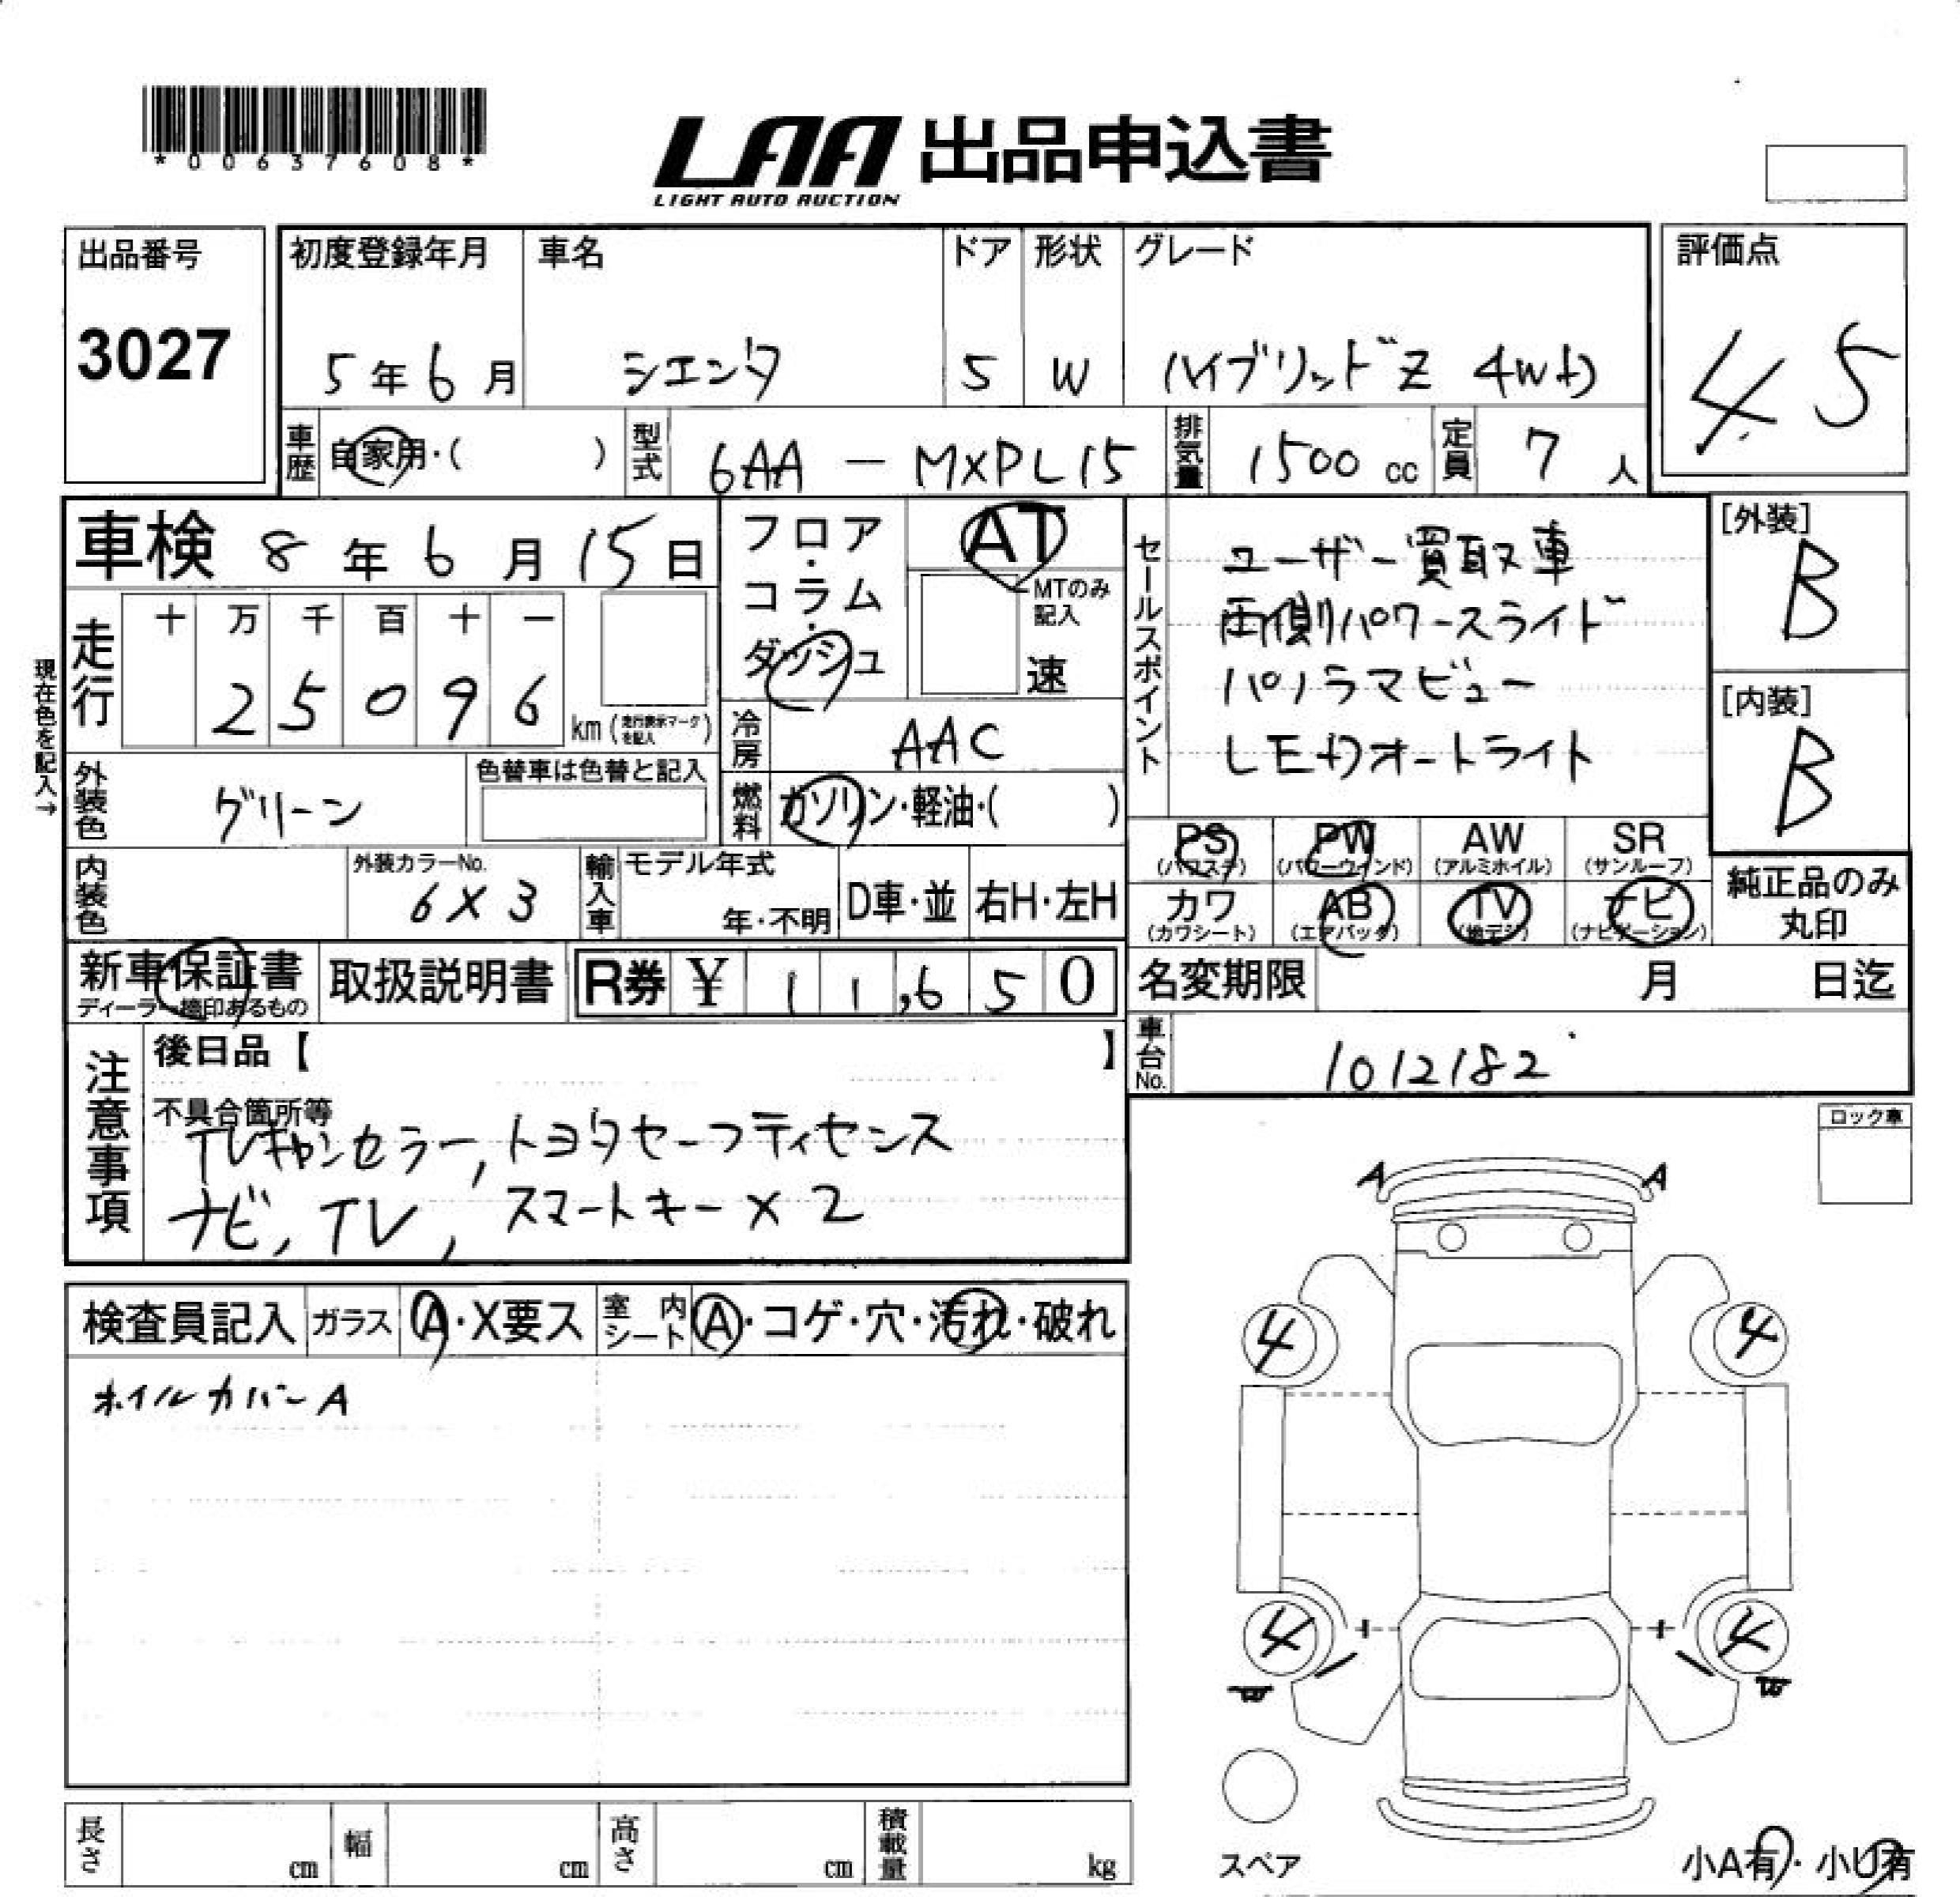 *00637608*
LAA 出品申込書
LIGHT AUTO AUCTION
出品番号
3027
初度登録年月
5年6月
車名
シエンタ
ドア
5
形状
W
グレード
ハイブリッドZ 4WD
評価点
4.5
車歴
自家用・( )
型式
6AA - MXPL15
排気量
1500 cc
定員
7 人
車検 8年6月15日
現在色を記入→
走行
十 万 千 百 十 一
2 5 0 9 6
km (走行表示マークを記入)
フロア・コラム・ダッシュ
AT
MTのみ記入
速
冷房
AAC
燃料
ガソリン・軽油・( )
セールスポイント
ユーザー買取車
両側パワースライド
パノラマビュー
LEDオートライト
[外装]
B
[内装]
B
外装色
グリーン
色替車は色替と記入
内装色
外装カラーNo.
6X3
輸入車
モデル年式
年・不明
D車・並
右H・左H
PS
(パワステ)
PW
(パワーウィンド)
AW
(アルミホイル)
SR
(サンルーフ)
カワ
(カワシート)
AB
(エアバッグ)
TV
(地デジ)
ナビ
(ナビゲーション)
純正品のみ
丸印
新車保証書
ディーラー捺印あるもの
取扱説明書
R券 ¥ 11,650
名変期限 月 日迄
車台No.
1012182
注意事項
後日品【 】
不具合箇所等
TVキャンセラー,トヨタセーフティセンス
ナビ, TV, スマートキー×2
ロック車
検査員記入
ガラス
A・X要ス
室内
シート
A・コゲ・穴・汚れ・破れ
ホイルカバーA
A
A
4
4
4
4
スペア
小A有・小U有
長さ cm
幅 cm
高さ cm
積載量 kg